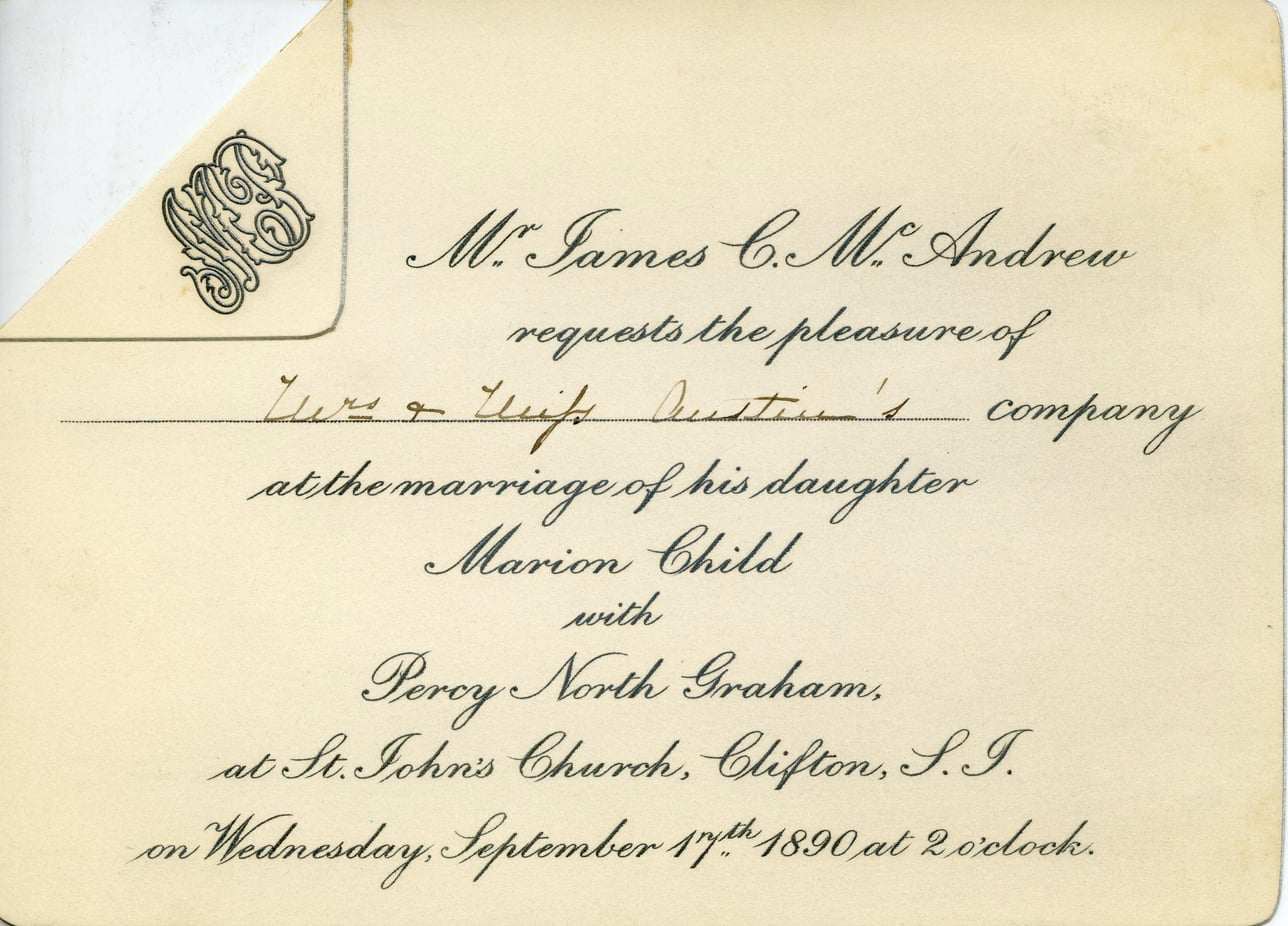 Mr. James C. Mc. Andrew
requests the pleasure of
Mrs & Miss Austin's company
at the marriage of his daughter
Marion Child
with
Percy North Graham,
at St. John's Church, Clifton, S. I.
on Wednesday, September 17th 1890 at 2 o'clock.